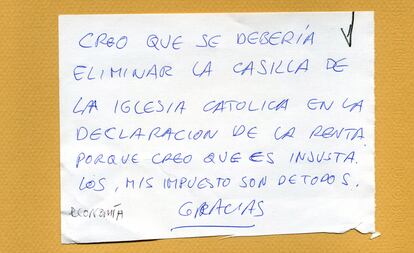 CREO QUE SE DEBERÍA
ELIMINAR LA CASILLA DE
LA IGLESIA CATOLICA EN LA
DECLARACION DE LA RENTA
PORQUE CREO QUE ES INJUSTA.
LOS, MIS IMPUESTO SON DE TODOS.
GRACIAS
ECONOMÍA